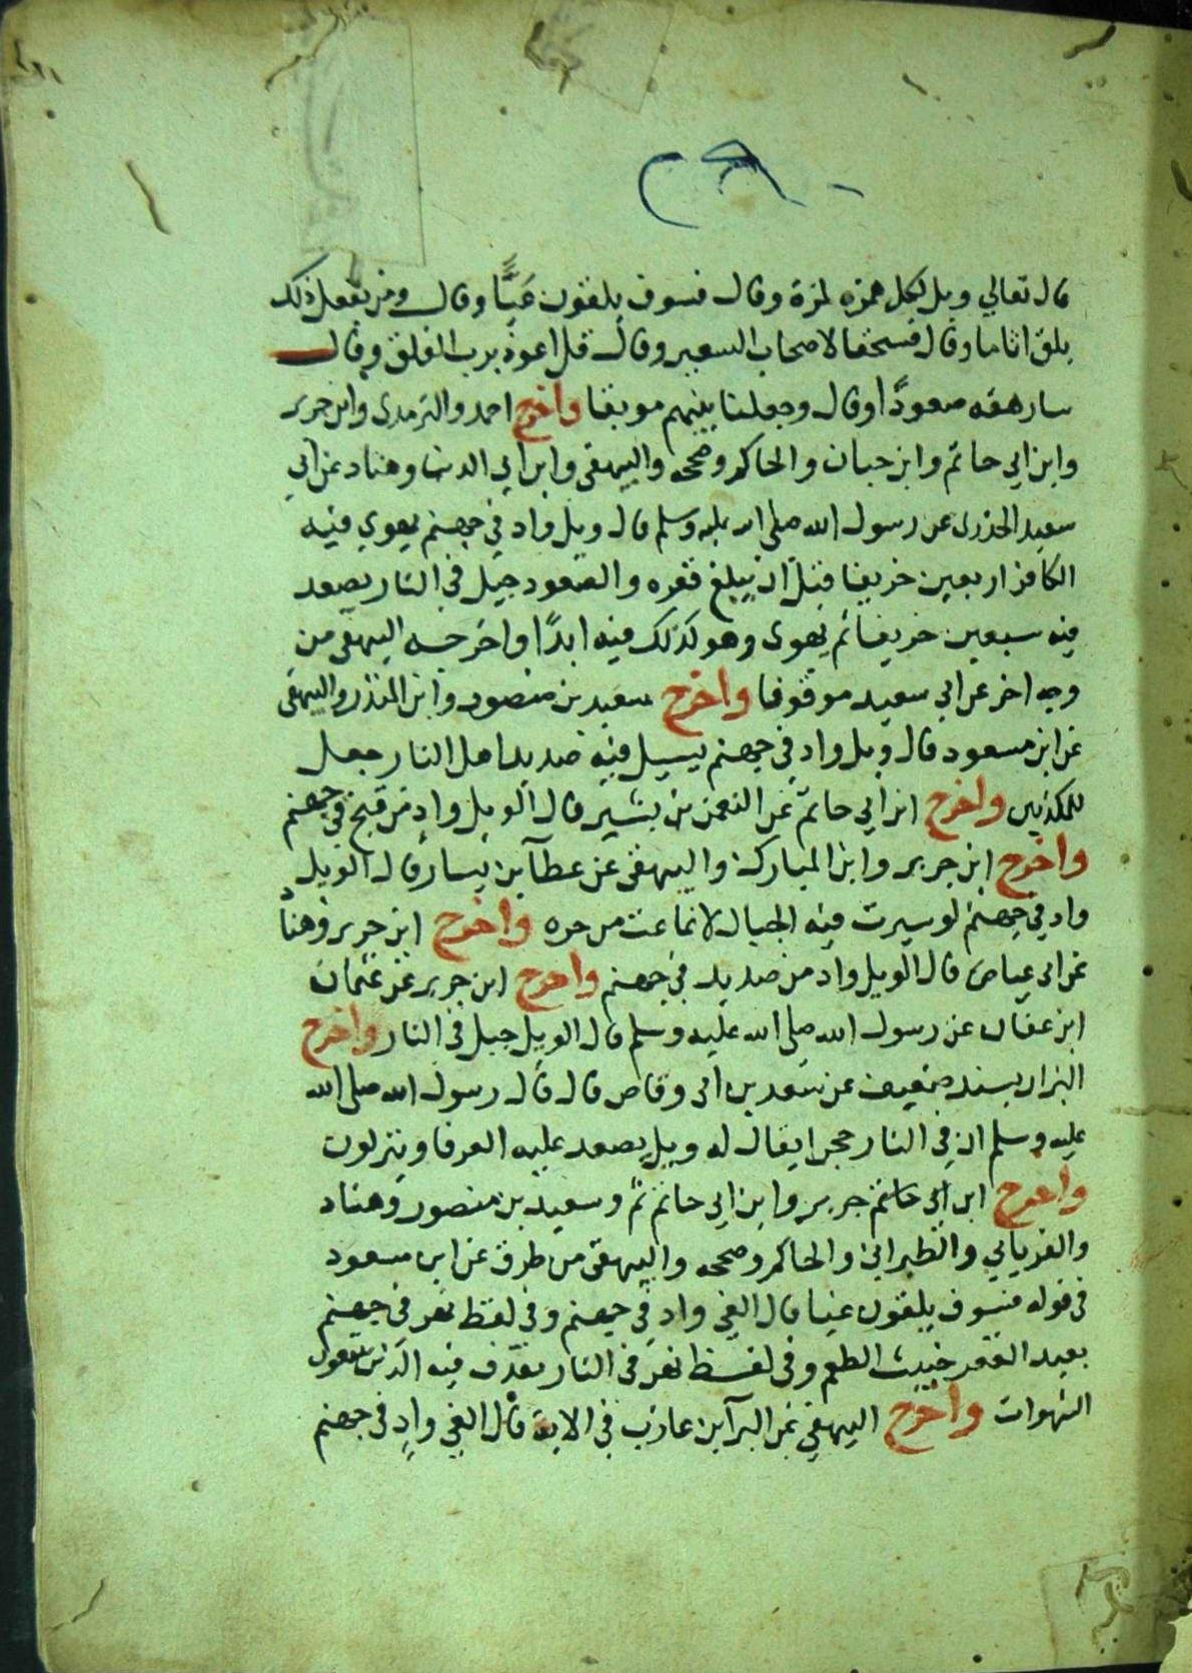 قال تعالي ويل لكل همزة لمزة وقال فسوف يلقون غيًّا وقال ومن يفعل ذلك
يلق اثاما وقال فسحقا لاصحاب السعير وقال قل اعوذ برب الفلق وقال
سارهقه صعودًا وقال وجعلنا بينهم موبقا واخرج احمد والترمذى وابن جرير
وابن ابي حاتم وابن حبان والحاكم وصححه والبيهقى وابن ابي الدنيا وهناد عن ابي
سعيد الخدرى عن رسول الله صلى الله عليه وسلم قال ويل واد في جهنم يهوي فيه
الكافر اربعين خريفا قبل ان يبلغ قعره والصعود جبل في النار يصعد
فيه سبعين خريفا ثم يهوى وهو كذلك فيه ابدًا واخرجه البيهقى من
وجه اخر عن ابي سعيد موقوفا واخرج سعيد بن منصور وابن المنذر والبيهقى
عن ابن مسعود قال ويل واد في جهنم يسيل فيه صديد اهل النار جعل
للمكذبين واخرج ابن ابي حاتم عن النعمن بن بشير قال الويل واد من قيح في جهنم
واخرج ابن جرير وابن المبارك والبيهقى عن عطآ بن يسار قال الويل
واد في جهنم لو سيرت فيه الجبال لانماعت من حره واخرج ابن جرير وهناد
عن ابى عياض قال الويل واد من صديد في جهنم واخرج ابن جرير عن عثمان
ابن عفان عن رسول الله صلى الله عليه وسلم قال الويل جبل في النار واخرج
البزار بسند ضعيف عن سعد بن ابى وقاص قال قال رسول الله صلى الله
عليه وسلم ان في النار حجرا يقال له ويل يصعد عليه العرفا وينزلون
واخرج ابن ابي حاتم جرير وابن ابي حاتم وسعيد بن منصور وهناد
والفريابي والطبراني والحاكم وصححه والبيهقى من طرق عن ابن مسعود
في قوله فسوف يلقون غيا قال الغي واد في جهنم وفي لفظ نهر في جهنم
بعيد القعر خبيث الطعم وفي لفظ نهر في النار يقذف فيه الذين يتبعون
الشهوات واخرج البيهقي عن البرآ بن عازب في الاية قال الغي وادٍ في جهنم